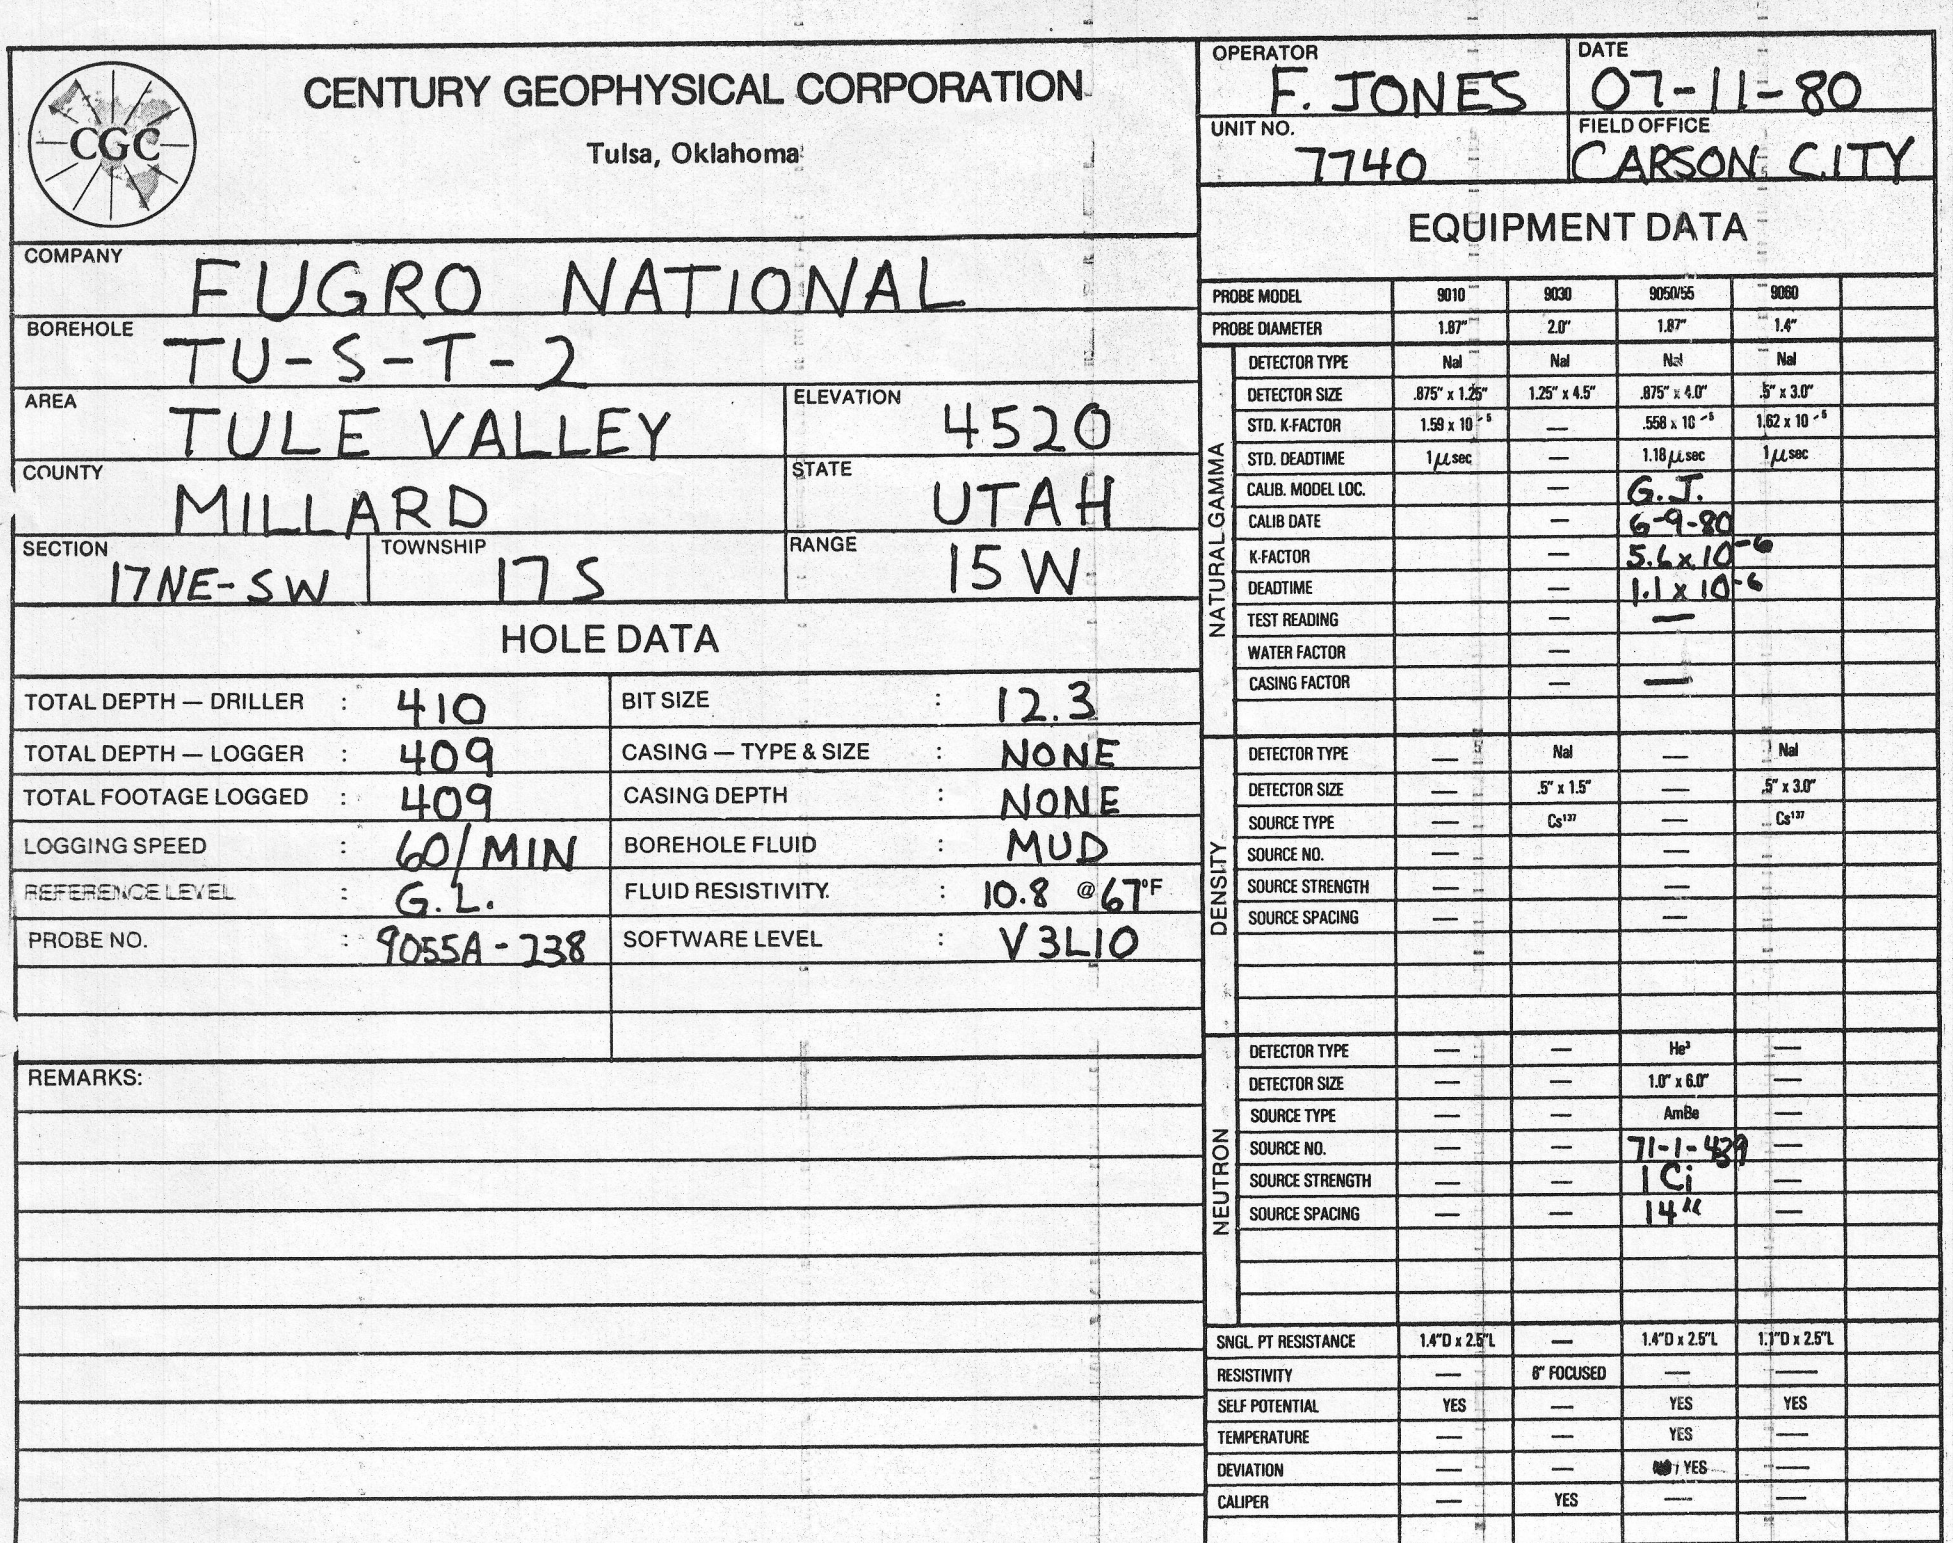 CGC
CENTURY GEOPHYSICAL CORPORATION
Tulsa, Oklahoma
OPERATOR F. JONES DATE 07-11-80
UNIT NO. 7740 FIELD OFFICE CARSON CITY
COMPANY FUGRO NATIONAL
BOREHOLE TU-S-T-2
AREA TULE VALLEY ELEVATION 4520
COUNTY MILLARD STATE UTAH
SECTION 17NE-SW TOWNSHIP 17S RANGE 15W
HOLE DATA
TOTAL DEPTH — DRILLER : 410 BIT SIZE : 12.3
TOTAL DEPTH — LOGGER : 409 CASING — TYPE & SIZE : NONE
TOTAL FOOTAGE LOGGED : 409 CASING DEPTH : NONE
LOGGING SPEED : 60/MIN BOREHOLE FLUID : MUD
REFERENCE LEVEL : G.L. FLUID RESISTIVITY. : 10.8 @ 67°F
PROBE NO. : 9055A-238 SOFTWARE LEVEL : V3L10
REMARKS:
EQUIPMENT DATA
PROBE MODEL 9010 9030 9050/55 9060
PROBE DIAMETER 1.87" 2.0" 1.87" 1.4"
NATURAL GAMMA
DETECTOR TYPE NaI NaI NaI NaI
DETECTOR SIZE .875" x 1.25" 1.25" x 4.5" .875" x 4.0" .5" x 3.0"
STD. K-FACTOR 1.59 x 10⁻⁵ — .558 x 10⁻⁵ 1.62 x 10⁻⁵
STD. DEADTIME 1μsec — 1.18μsec 1μsec
CALIB. MODEL LOC. — G.J.
CALIB DATE — 6-9-80
K-FACTOR — 5.6x10⁻⁶
DEADTIME — 1.1x10⁻⁶
TEST READING — —
WATER FACTOR —
CASING FACTOR — —
DENSITY
DETECTOR TYPE — NaI — NaI
DETECTOR SIZE — .5" x 1.5" — .5" x 3.0"
SOURCE TYPE — Cs¹³⁷ — Cs¹³⁷
SOURCE NO. — —
SOURCE STRENGTH — —
SOURCE SPACING — —
NEUTRON
DETECTOR TYPE — — He³ —
DETECTOR SIZE — — 1.0" x 6.0" —
SOURCE TYPE — — AmBe —
SOURCE NO. — — 71-1- —
SOURCE STRENGTH — — 1 Ci —
SOURCE SPACING — — 14" —
SNGL. PT RESISTANCE 1.4"D x 2.5"L — 1.4"D x 2.5"L 1.1"D x 2.5"L
RESISTIVITY — 6" FOCUSED — —
SELF POTENTIAL YES — YES YES
TEMPERATURE — — YES —
DEVIATION — — / YES —
CALIPER — YES — —